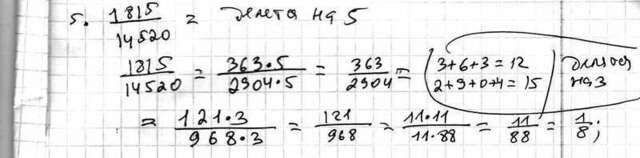 5. 1815/14520 = делёта на 5
1815/14520 = 363·5/2904·5 = 363/2904 = (3+6+3=12 2+9+0+4=15) делюся на 3
= 121·3/968·3 = 121/968 = 11·11/11·88 = 11/88 = 1/8;